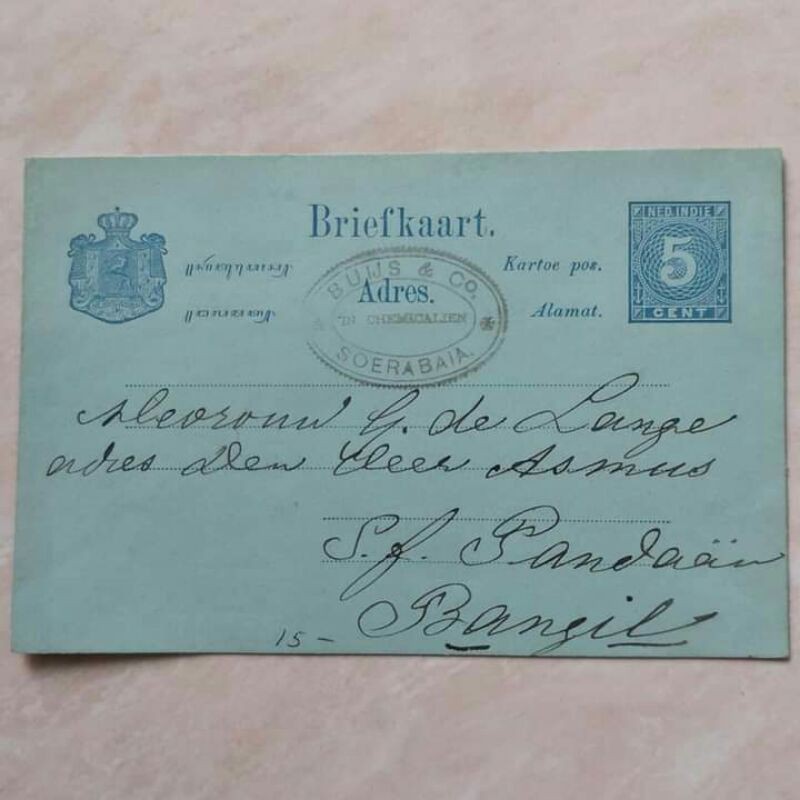 Briefkaart.
NED. INDIE
5
CENT
Kartoe pos.
Adres.
Alamat.
BUIJS & Co.
IN CHEMICALIEN
SOERABAIA.
Mevrouw G. de Lange
adres Den Heer Asmus
S.f. Pandaän
Bangil
15 -